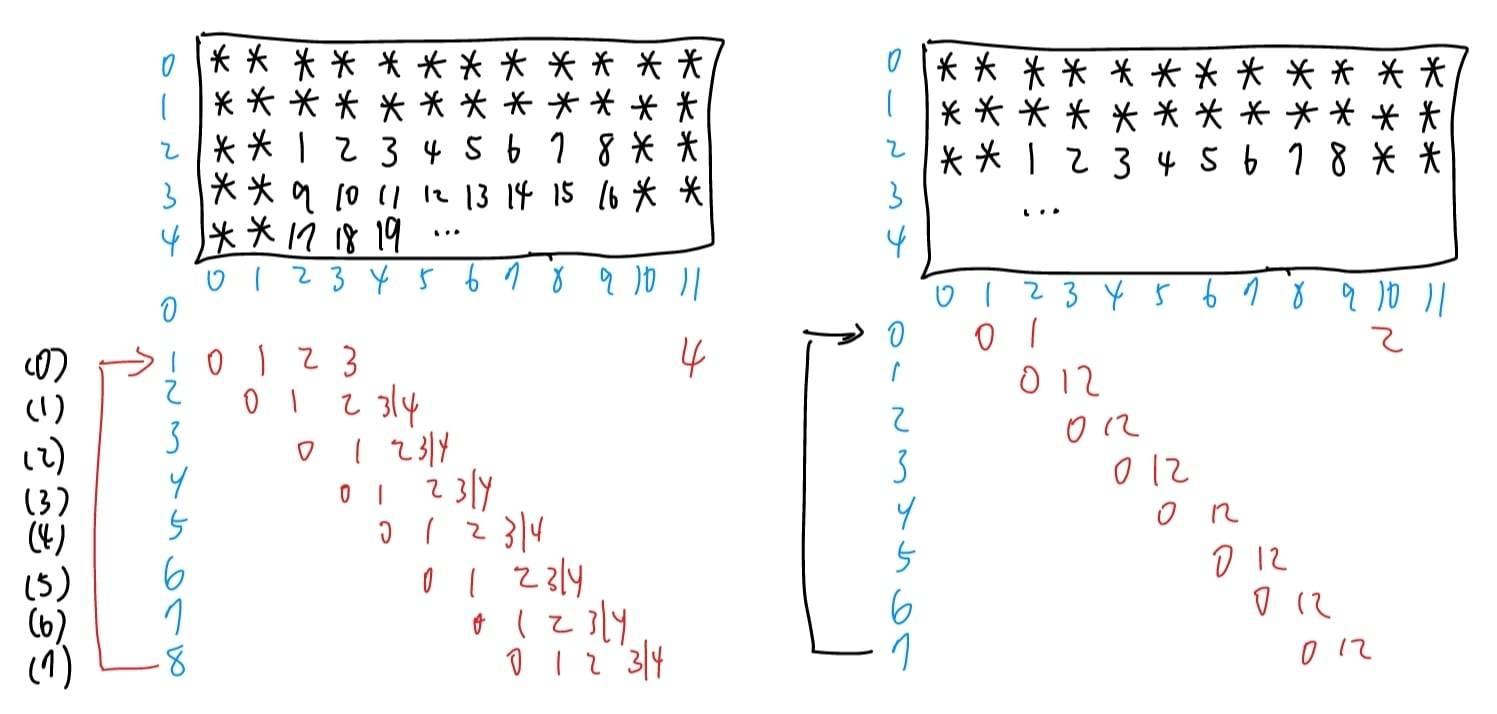 0 * * * * * * * * * * * *
1 * * * * * * * * * * * *
2 * * 1 2 3 4 5 6 7 8 * *
3 * * 9 10 11 12 13 14 15 16 * *
4 * * 17 18 19 ...
0 1 2 3 4 5 6 7 8 9 10 11
0
(0) 1 0 1 2 3 4
(1) 2 0 1 2 3|4
(2) 3 0 1 2 3|4
(3) 4 0 1 2 3|4
(4) 5 0 1 2 3|4
(5) 6 0 1 2 3|4
(6) 7 0 1 2 3|4
(7) 8 0 1 2 3|4
0 * * * * * * * * * * * *
1 * * * * * * * * * * * *
2 * * 1 2 3 4 5 6 7 8 * *
3 ...
4
0 1 2 3 4 5 6 7 8 9 10 11
0 0 1 2
1 0 1 2
2 0 1 2
3 0 1 2
4 0 1 2
5 0 1 2
6 0 1 2
7 0 1 2